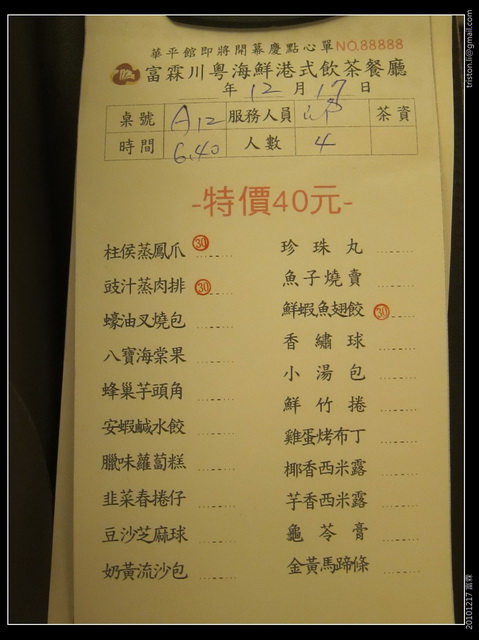 華平館即將開幕慶點心單NO.88888
富霖川粵海鮮港式飲茶餐廳
年 12 月 17 日
桌號 A12 服務人員 茶資
時間 6.40 人數 4
-特價40元-
柱侯蒸鳳爪 30
豉汁蒸肉排 30
蠔油叉燒包
八寶海棠果
蜂巢芋頭角
安蝦鹹水餃
臘味蘿蔔糕
韭菜春捲仔
豆沙芝麻球
奶黃流沙包
珍珠丸
魚子燒賣
鮮蝦魚翅餃 30
香繡球
小湯包
鮮竹捲
雞蛋烤布丁
椰香西米露
芋香西米露
龜苓膏
金黃馬蹄條
triston.li@gmail.com
20101217 富霖